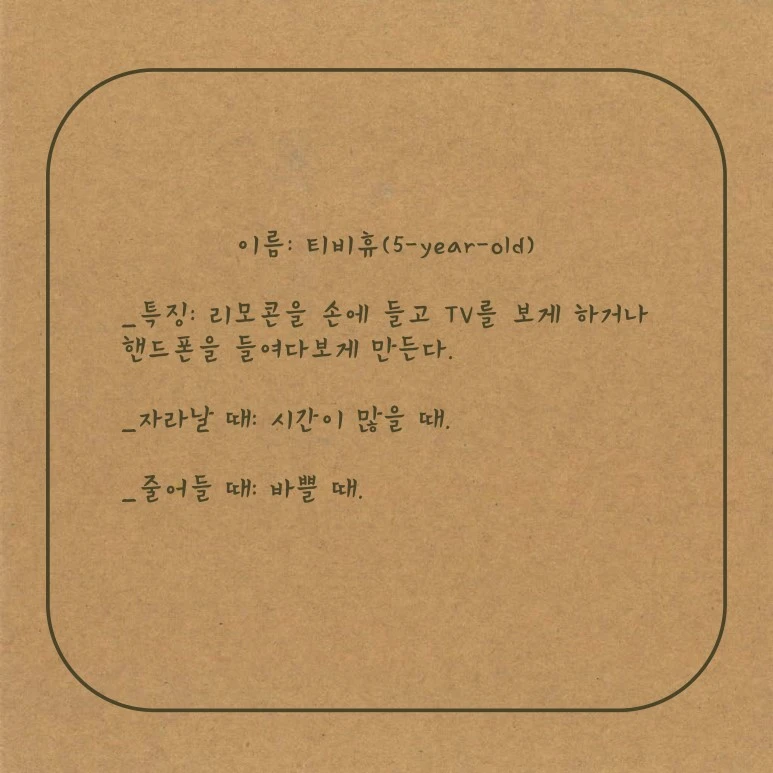 이름: 티비휴(5-year-old)
_특징: 리모콘을 손에 들고 TV를 보게 하거나
핸드폰을 들여다보게 만든다.
_자라날 때: 시간이 많을 때.
_줄어들 때: 바쁠 때.